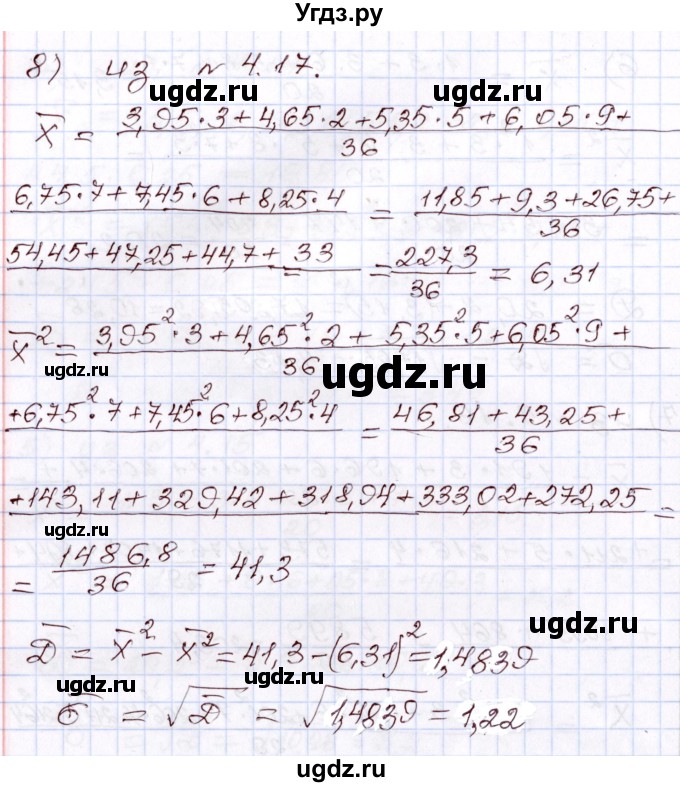 Угдз.ру
8) из № 4.17.
ugdz.ru ugdz.ru
x̄ = (3,95·3+4,65·2+5,35·5+6,05·9+
36
6,75·7+7,45·6+8,25·4 = 11,85+9,3+26,75+
36
54,45+47,25+44,7+33 = 227,3/36 = 6,31
x̄² = 3,95²·3+4,65²·2+5,35²·5+6,05²·9+
36
ugdz.ru ugdz.ru
+6,75²·7+7,45²·6+8,25²·4 = 46,81+43,25+
36
+143,11+329,42+318,94+333,02+272,25 =
ugdz.ru
= 1486,8/36 = 41,3
ugdz.ru
D̄ = x̄² - x̄² = 41,3-(6,31)² = 1,4839
ugdz.ru
σ̄ = √D̄ = √1,4839 = 1,22
ugdz.ru